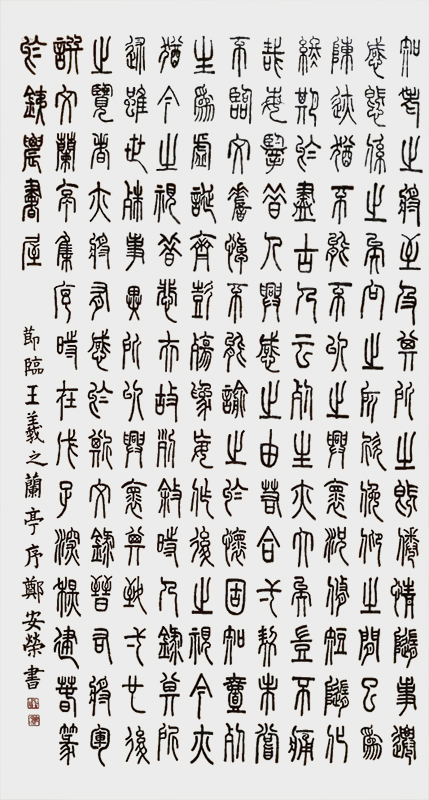 知老之將至及其所之既倦情隨事遷
感慨係之矣向之所欣俛仰之間已為
陳迹猶不能不以之興懷況脩短隨化
終期於盡古人云死生亦大矣豈不痛
哉每攬昔人興感之由若合一契未嘗
不臨文嗟悼不能喻之於懷固知壹死
生為虛誕齊彭殤為妄作後之視今亦
猶今之視昔悲夫故列敘時人錄其所
述雖世殊事異所以興懷其致一也後
之覽者亦將有感於斯文錄晉右將軍
文蘭亭集序時在戊子深建春篆
於鐵農書屋
節臨王羲之蘭亭序鄭安榮書